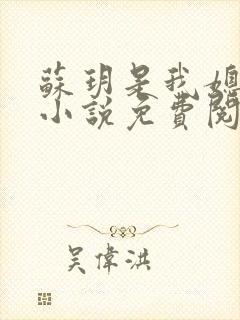 蘇玥是我媳
小說免費閱
吳偉洪